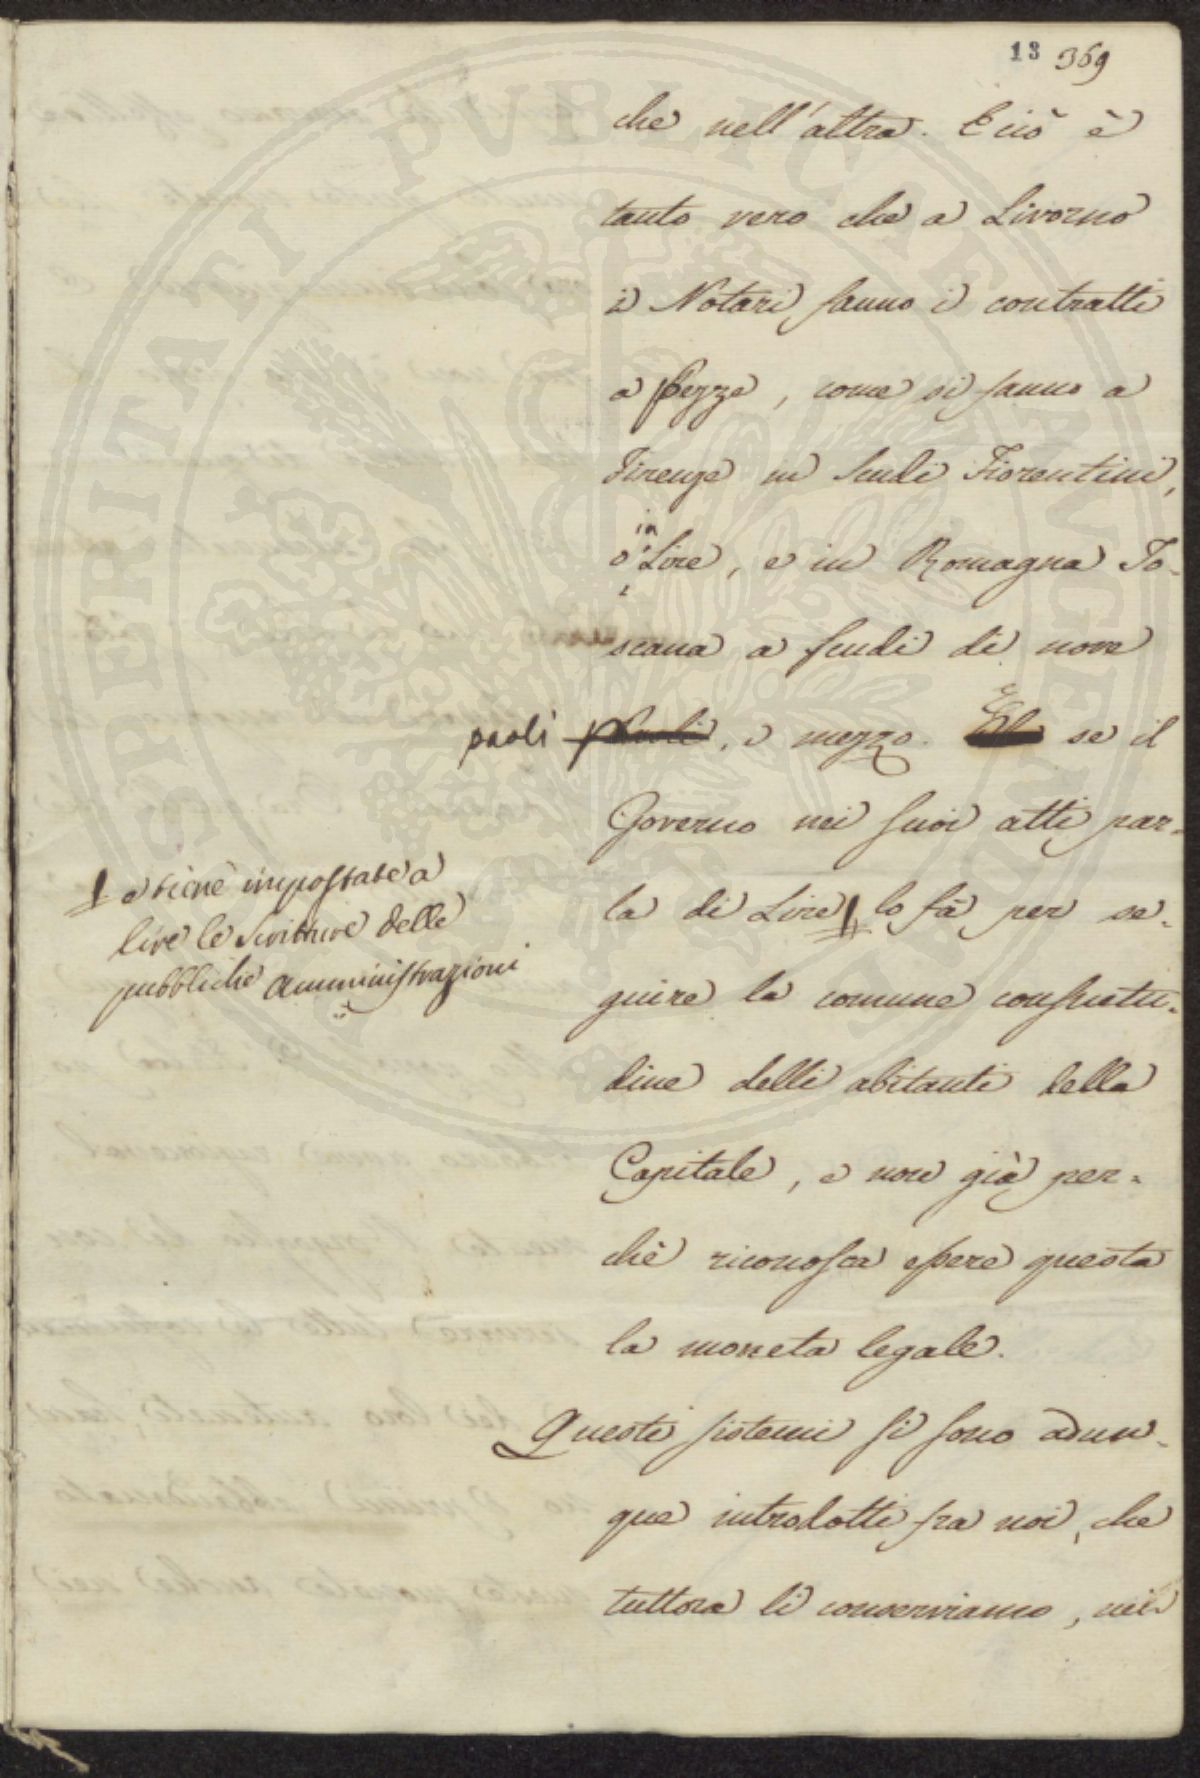 13 369
che nell'altra. E ciò è
tanto vero che a Livorno
i Notari fanno i contratti
a Pezze, come si fanno a
Firenze in Scudi Fiorentini,
o in Lire, e in Romagna To-
scana a Scudi di nove
paoli, e mezzo. E se il
Governo nei suoi atti par-
la di Lire lo fà per se-
guire la comune consuetu-
dine delli abitanti della
Capitale, e non già per-
chè riconosca essere questa
la moneta legale.
Questi sistemi si sono adun-
que introdotti fra noi, che
tuttora li conserviamo, nei
e tiene impostate a
lire le Scritture delle
pubbliche Amministrazioni
SPERITATI PVBLICAE AVGENDAE